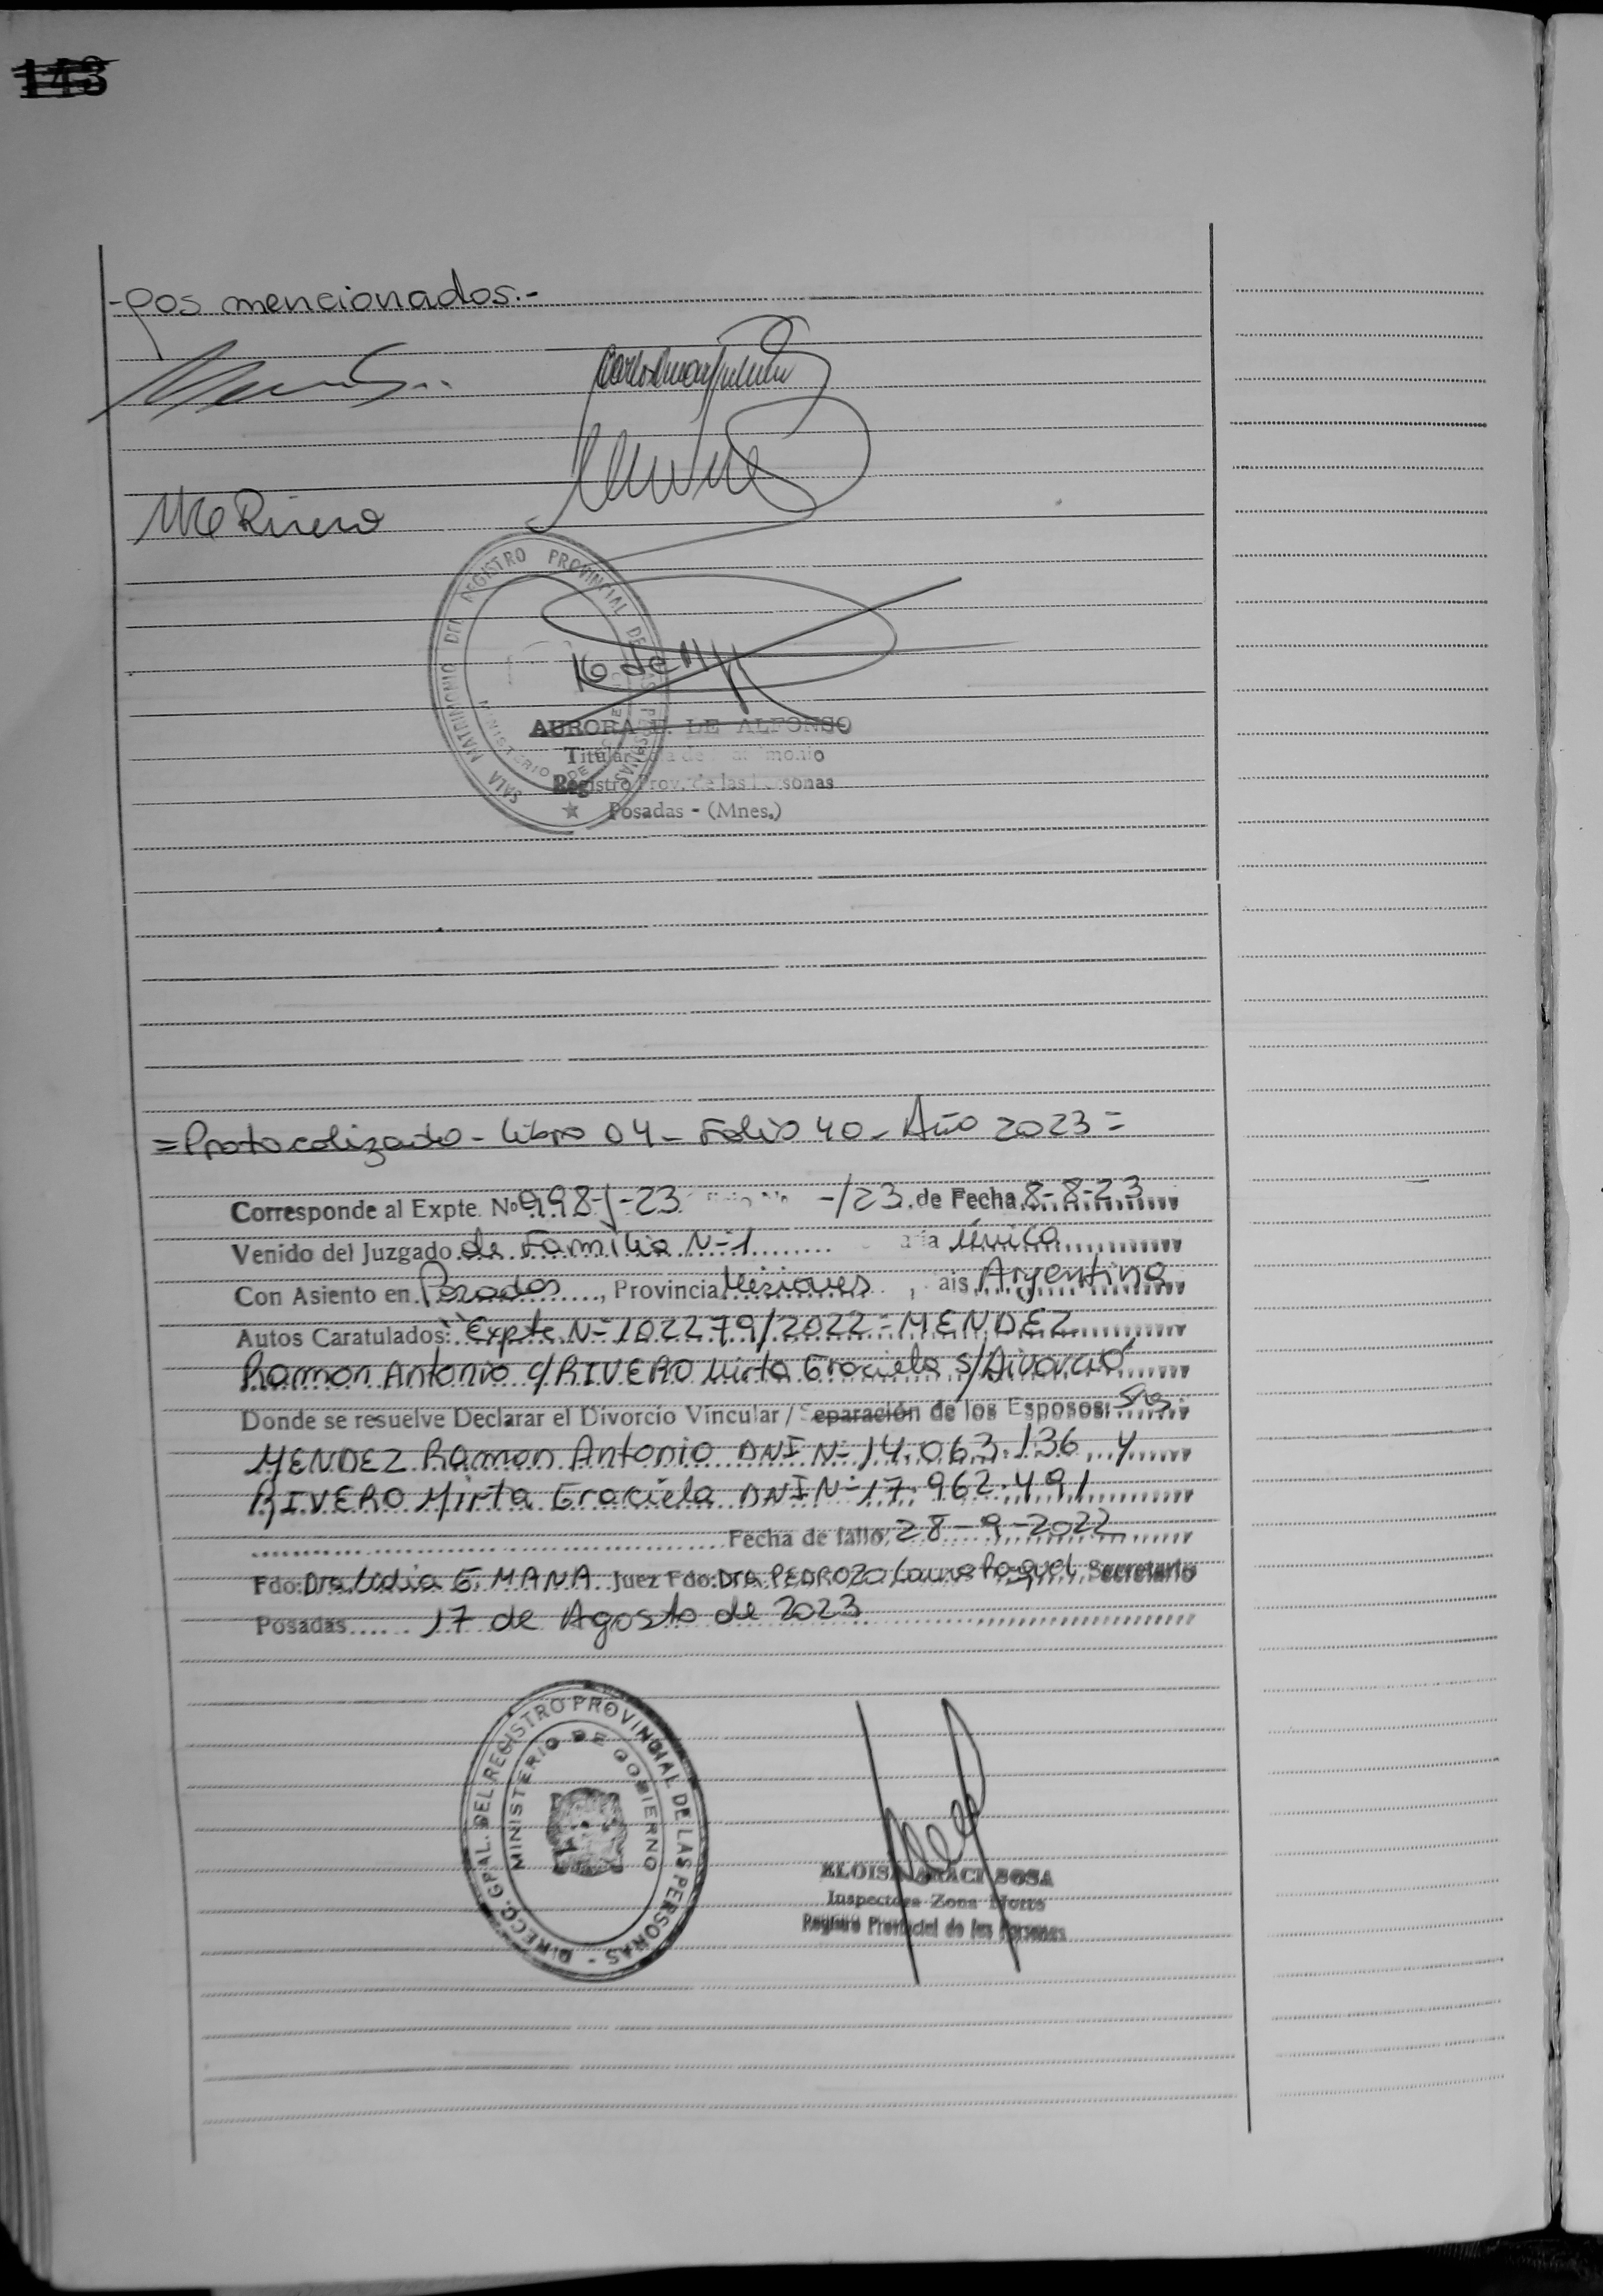 143
-pos mencionados.-
MG Rivero
SALA MATRIMONIO DEL REGISTRO PROVINCIAL DE LAS PERSONAS
MINISTERIO DE
16 de
AURORA E. DE ALFONSO
Titular
Registro Prov. de las Personas
Posadas - (Mnes.)
=Protocolizado - Libro 04 - Folio 40 - Año 2023=
Corresponde al Expte. Nº 998-J-23 -/23. de Fecha 8-8-23
Venido del Juzgado de Familia N-1 única
Con Asiento en Posadas, Provincia Misiones, ais Argentina
Autos Caratulados: "Expte N-102279/2022-MENDEZ
Ramon Antonio c/RIVERO Mirta Graciela s/Divorcio"
Donde se resuelve Declarar el Divorcio Vincular / Separación de los Esposos: Sres.
MENDEZ Ramon Antonio DNI N-14.063.136 y
RIVERO Mirta Graciela DNI N-17.962.491
Fecha de fallo: 28-9-2022
Fdo: Dra. Lidia G. MANA Juez Fdo: Dra. PEDROZO Laura Raquel Secretario
Posadas 17 de Agosto de 2023
DIRECC. GRAL. DEL REGISTRO PROVINCIAL DE LAS PERSONAS -
MINISTERIO DE GOBIERNO
ELOISA ARACI SOSA
Inspectora Zona Norte
Registro Provincial de las Personas